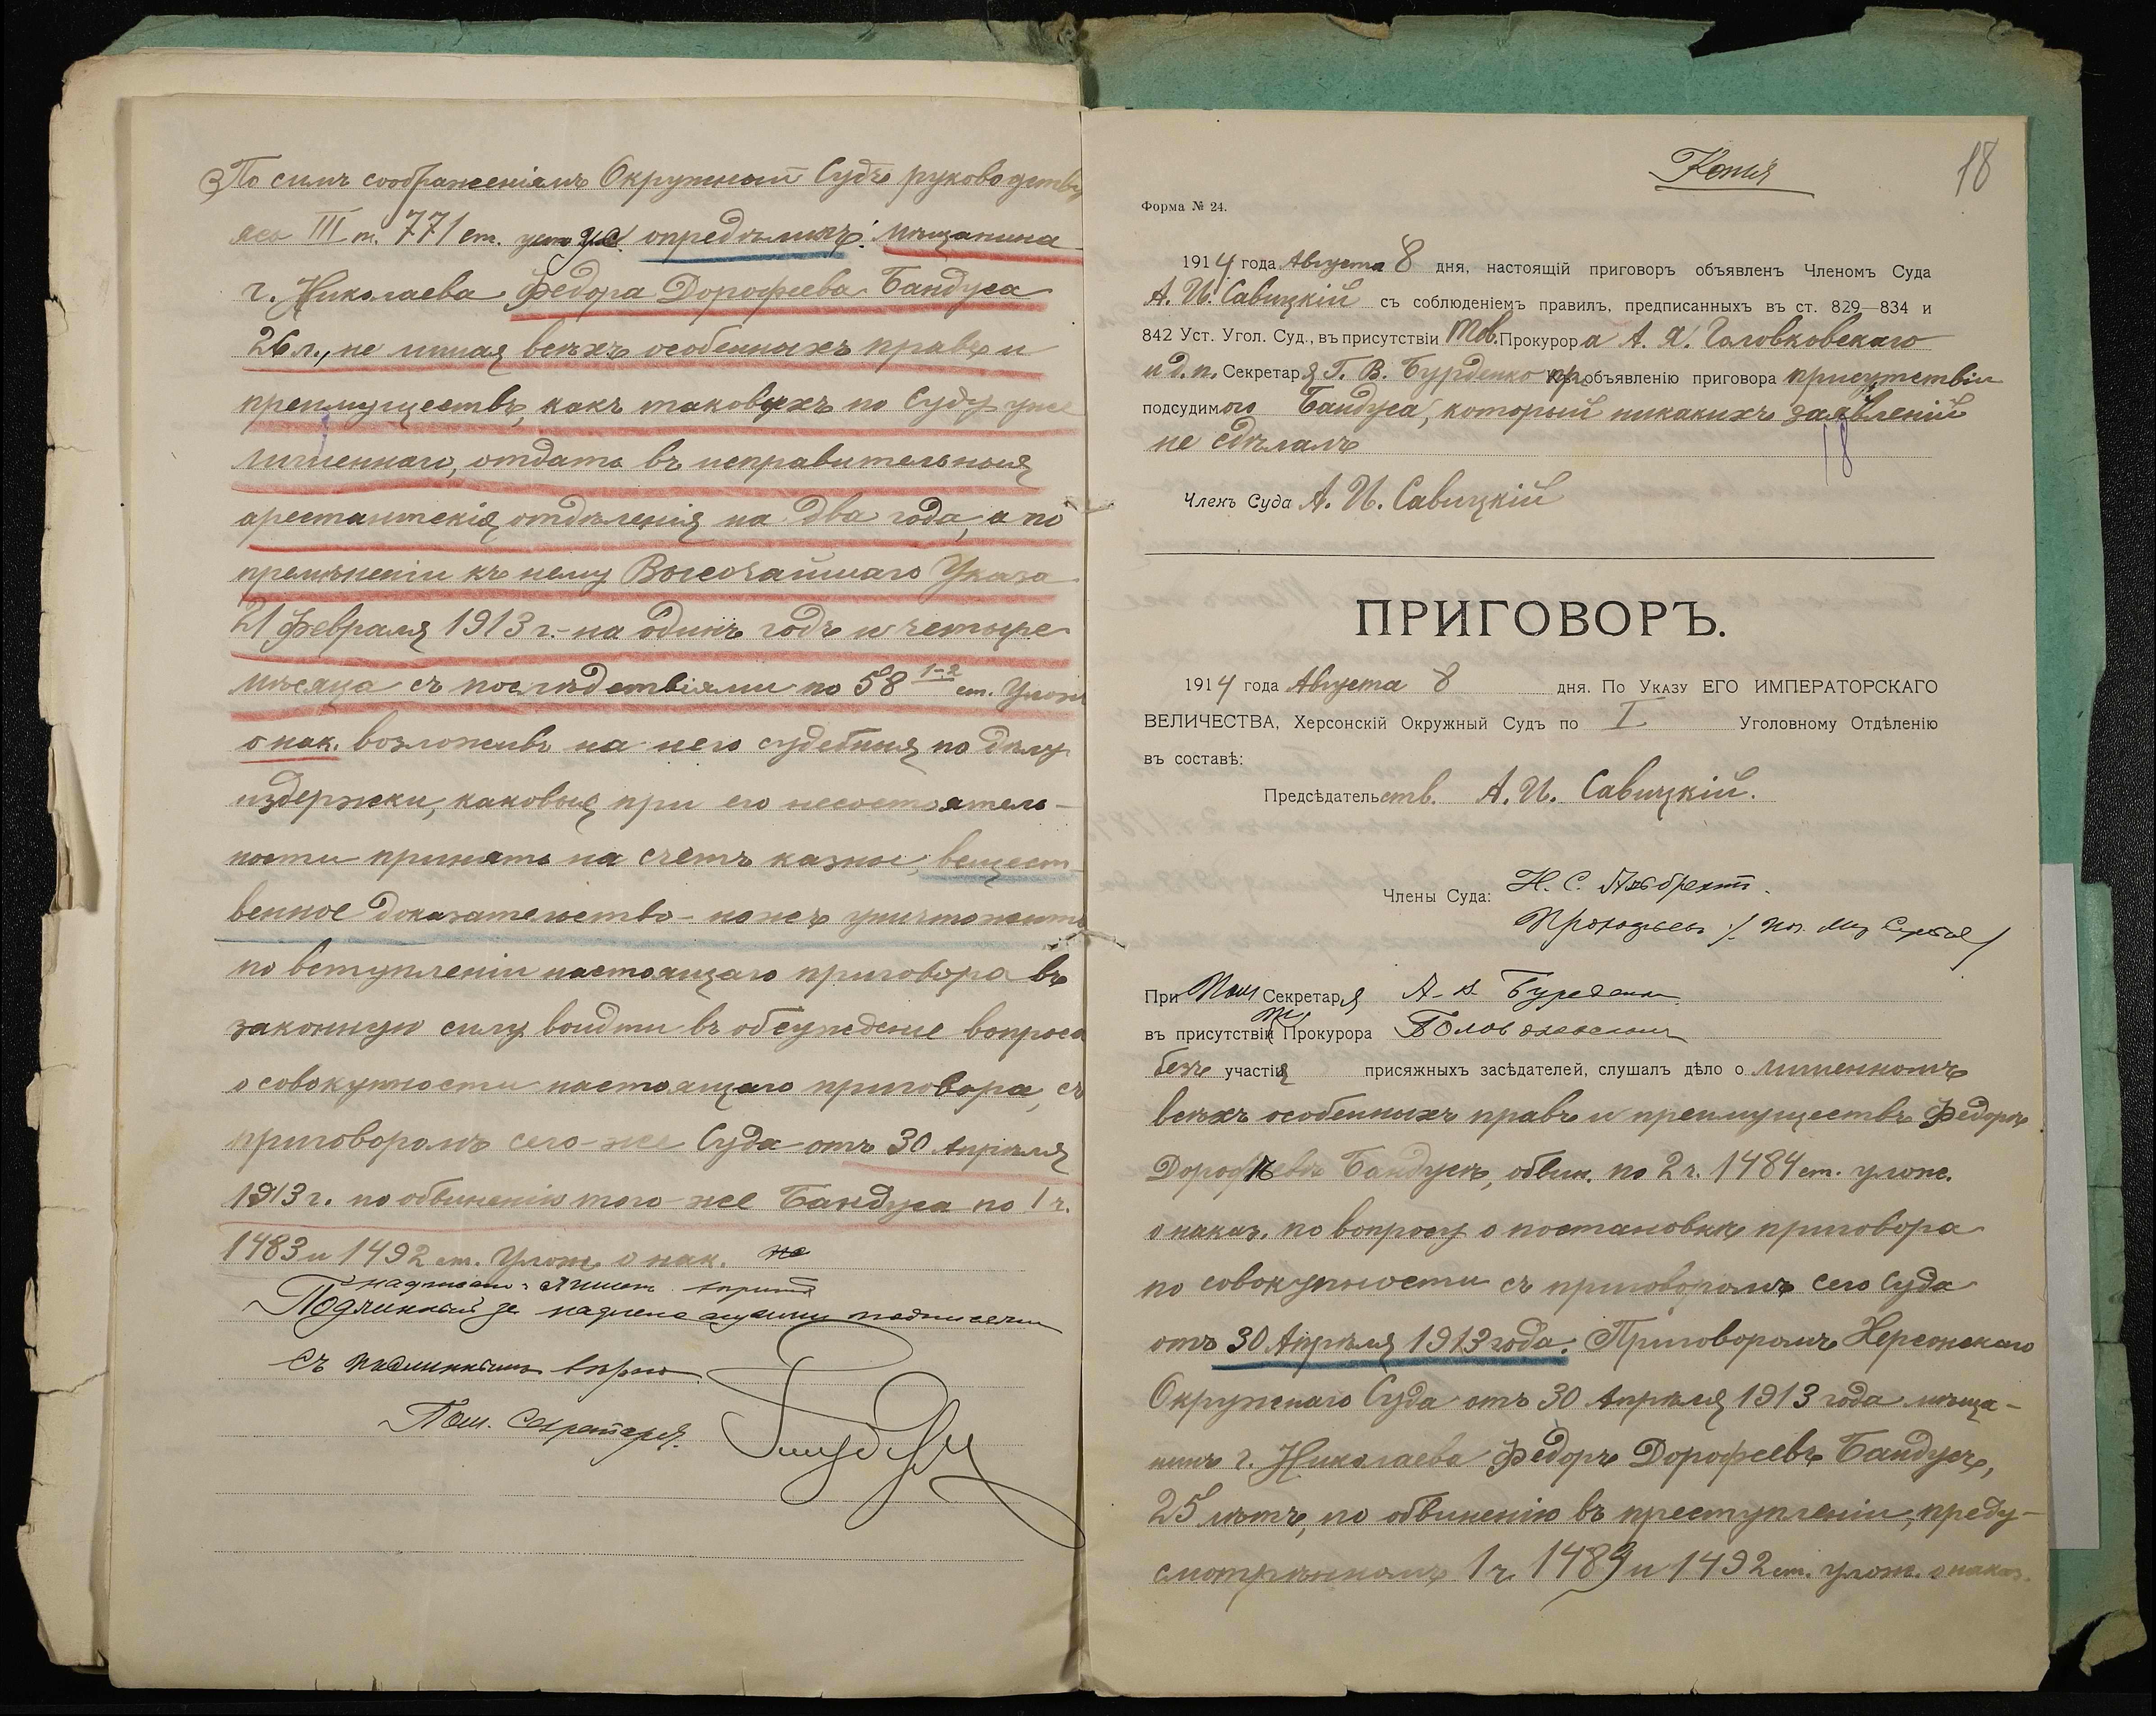 По симъ соображеніямъ Окружный Судъ руководству
ясь III п. 771 ст. уст. у. с. опредѣлилъ: мѣщанина
г. Николаева Федора Дорофеева Бандуса
26 л., не лишая всѣхъ особенныхъ правъ и
преимуществъ, какъ таковыхъ по суду уже
лишеннаго, отдать въ исправительныя
арестантскія отдѣленія на два года, а по
примѣненіи къ нему Высочайшаго Указа
21 февраля 1913 г.- на одинъ годъ и четыре
мѣсяца съ послѣдствіями по 58 1-2 ст. Улож
о нак. возложивъ на него судебныя по дѣлу
издержки, каковыя при его несостоятель-
ности принять на счетъ казны, вещест
венное доказательство - ножъ уничтожить
по вступленіи настоящаго приговора въ
законную силу войти въ обсужденіе вопроса
о совокупности настоящаго приговора, съ
приговоромъ сего-же Суда отъ 30 Апрѣля
1913 г. по обвиненію того-же Бандуса по 1 ч.
1483 и 1492 ст. Улож. о нак.
Подлинный за надлежащими подписями
Съ подлиннымъ вѣрно
Пом. Секретаря
Копія
18
Форма № 24.
1914 года Августа 8 дня, настоящій приговоръ объявленъ Членомъ Суда
А. И. Савицкій съ соблюденіемъ правилъ, предписанныхъ въ ст. 829—834 и
842 Уст. Угол. Суд., въ присутствіи Тов. Прокурора А. Я. Головковскаго
и д. п. Секретаря Г. В. Бурденко къ объявленію приговора присутствіи
подсудимого Бандуса, который никакихъ заявленій
не сдѣлалъ
18
Членъ Суда А. И. Савицкій
ПРИГОВОРЪ.
1914 года Августа 8 дня. По Указу ЕГО ИМПЕРАТОРСКАГО
ВЕЛИЧЕСТВА, Херсонскій Окружный Судъ по I Уголовному Отдѣленію
въ составѣ:
Предсѣдательств. А. И. Савицкій.
Члены Суда: Н. С.
При Пом Секретаря
въ присутствіи Прокурора
безъ участія присяжныхъ засѣдателей, слушалъ дѣло о лишенномъ
всѣхъ особенныхъ правъ и преимуществъ Федорѣ
Дорофѣевѣ Бандусѣ, обвин. по 2 ч. 1484 ст. улож.
о наказ. по вопросу о постановкѣ приговора
по совокупности съ приговоромъ сего Суда
отъ 30 Апрѣля 1913 года. Приговоромъ Херсонскаго
Окружнаго Суда отъ 30 Апрѣля 1913 года мѣща-
нинъ г. Николаева Федоръ Дорофеевъ Бандусъ,
25 лѣтъ, по обвиненію въ преступленіи, преду-
смотрѣнномъ 1 ч. 1483 и 1492 ст. улож. о наказ.